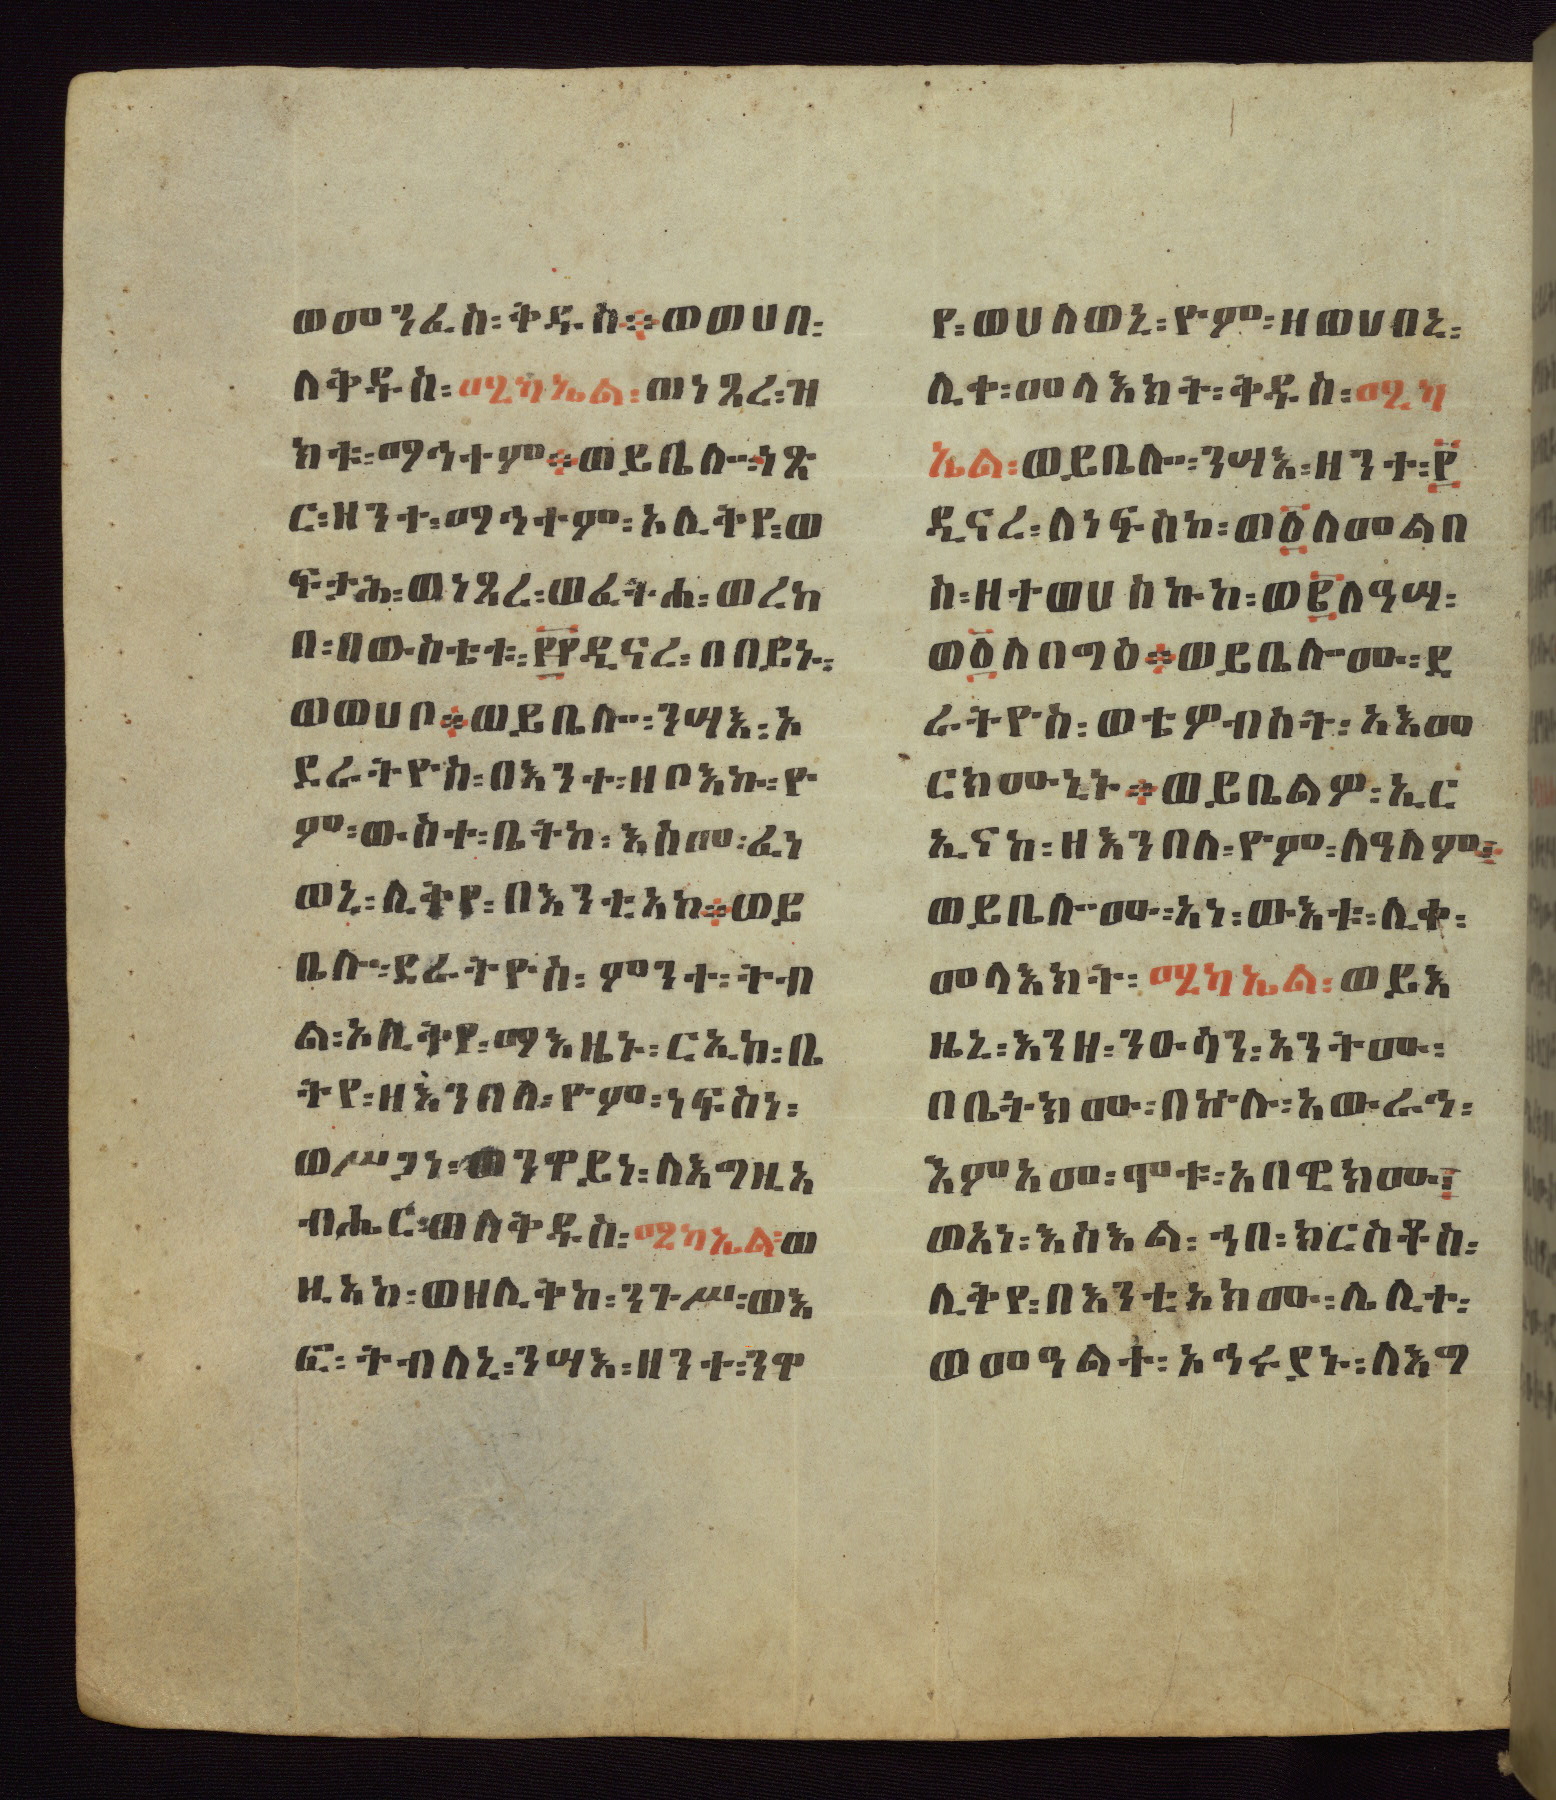 ወመንፈስ፡ቅዱስ፨ወወሀበ፡
ለቅዱስ፡ሚካኤል፡ወነጺረ፡ዝ
ክቱ፡ማኅተም፨ወይቤሎ፡ነጽ
ር፡ዘንተ፡ማኅተም፡እሊቅየ፡ወ
ፍታሕ፡ወነጺረ፡ወፈትሐ፡ወረከ
በ፡በውስቴቱ፡፻፻ዲናረ፡በበይኑ፡
ወወሀቦ፨ወይቤሎ፡ንሣእ፡ኦ
ደራትዮስ፡በእንተ፡ዘቦእኩ፡ዮ
ም፡ውስተ፡ቤትከ፡እስመ፡ፈነ
ወኒ፡ሊቅየ፡በእንቲአከ፨ወይ
ቤሎ፡ደራትዮስ፡ምንተ፡ትብ
ል፡ኦሊቅየ፡ማእዜኑ፡ርኢከ፡ቤ
ትየ፡ዘእንበለ፡ዮም፡ነፍስነ፡
ወሥጋነ፡ወንዋይነ፡ለእግዚአ
ብሔር፡ወለቅዱስ፡ሚካኤል፡ወ
ዚአከ፡ወዘሊቅከ፡ንጉሥ፡ወእ
ፎ፡ትብለኒ፡ንሣእ፡ዘንተ፡ንዋ
የ፡ወሀለወኒ፡ዮም፡ዘወሀበኒ፡
ሊቀ፡መላእክት፡ቅዱስ፡ሚካ
ኤል፡ወይቤሎ፡ንሣእ፡ዘንተ፡፻
ዲናረ፡ለነፍስከ፡ወ፩ለመልበ
ስ፡ዘተወሀ ስኩከ፡ወ፪ለዓሣ፡
ወ፩ለበግዕ፨ወይቤሎሙ፡ደ
ራትዮስ፡ወቴዎብስት፡አእመ
ርክሙኒኑ፨ወይቤልዎ፡ኢር
ኢናከ፡ዘእንበለ፡ዮም፡ለዓለም፨
ወይቤሎሙ፡አነ፡ውእቱ፡ሊቀ፡
መላእክት፡ሚካኤል፡ወይእ
ዜኒ፡እንዘ፡ንዑሳን፡አንትሙ፡
በቤትክሙ፡በኵሉ፡አውራኅ፡
እምአመ፡ሞቱ፡አበዊክሙ፨
ወአነ፡እስእል፡ኀበ፡ክርስቶስ፡
ሊቅየ፡በእንቲአክሙ፡ሌሊተ፡
ወመዓልተ፡አኀሩያኑ፡ለእግ